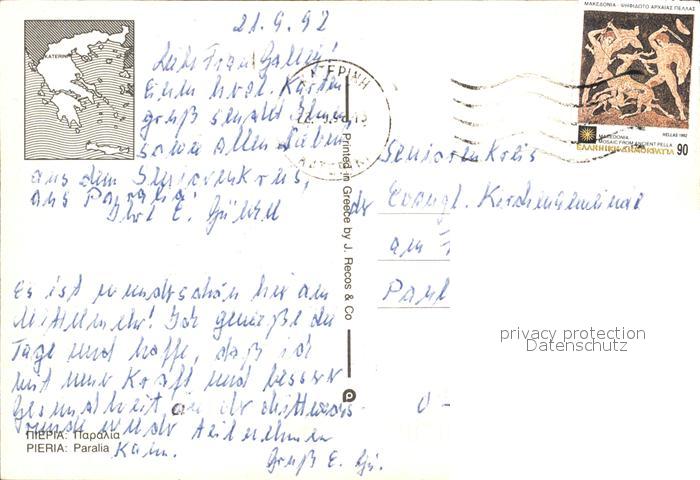 21.9.92
KATERINI
Einen herzl. Karten
gruß sendet Ihnen
sowie allen Lieben
aus dem Seniorenkreis,
aus Paralia
Ihre E.
Es ist wunderschön hier am
Mittelmeer! Ich genieße die
Tage und hoffe, daß ich
mit neuer Kraft und besserer
Gesundheit an der Mittwochs-
runde wieder teilnehmen
kann.
Gruß E. Gü.
ΠΙΕΡΙΑ: Παραλία
PIERIA: Paralia
Printed in Greece by J. Recos & Co
ΚΑΤΕΡΙΝΗ
ΜΑΚΕΔΟΝΙΑ - ΨΗΦΙΔΩΤΟ ΑΡΧΑΙΑΣ ΠΕΛΛΑΣ
HELLAS 1992
MAKEDONIA
MOSAIC FROM ANCIENT PELLA
ΕΛΛΗΝΙΚΗ ΔΗΜΟΚΡΑΤΙΑ 90
Seniorenkreis
der Evangl. Kirchengemeinde
am
Paul
privacy protection
Datenschutz